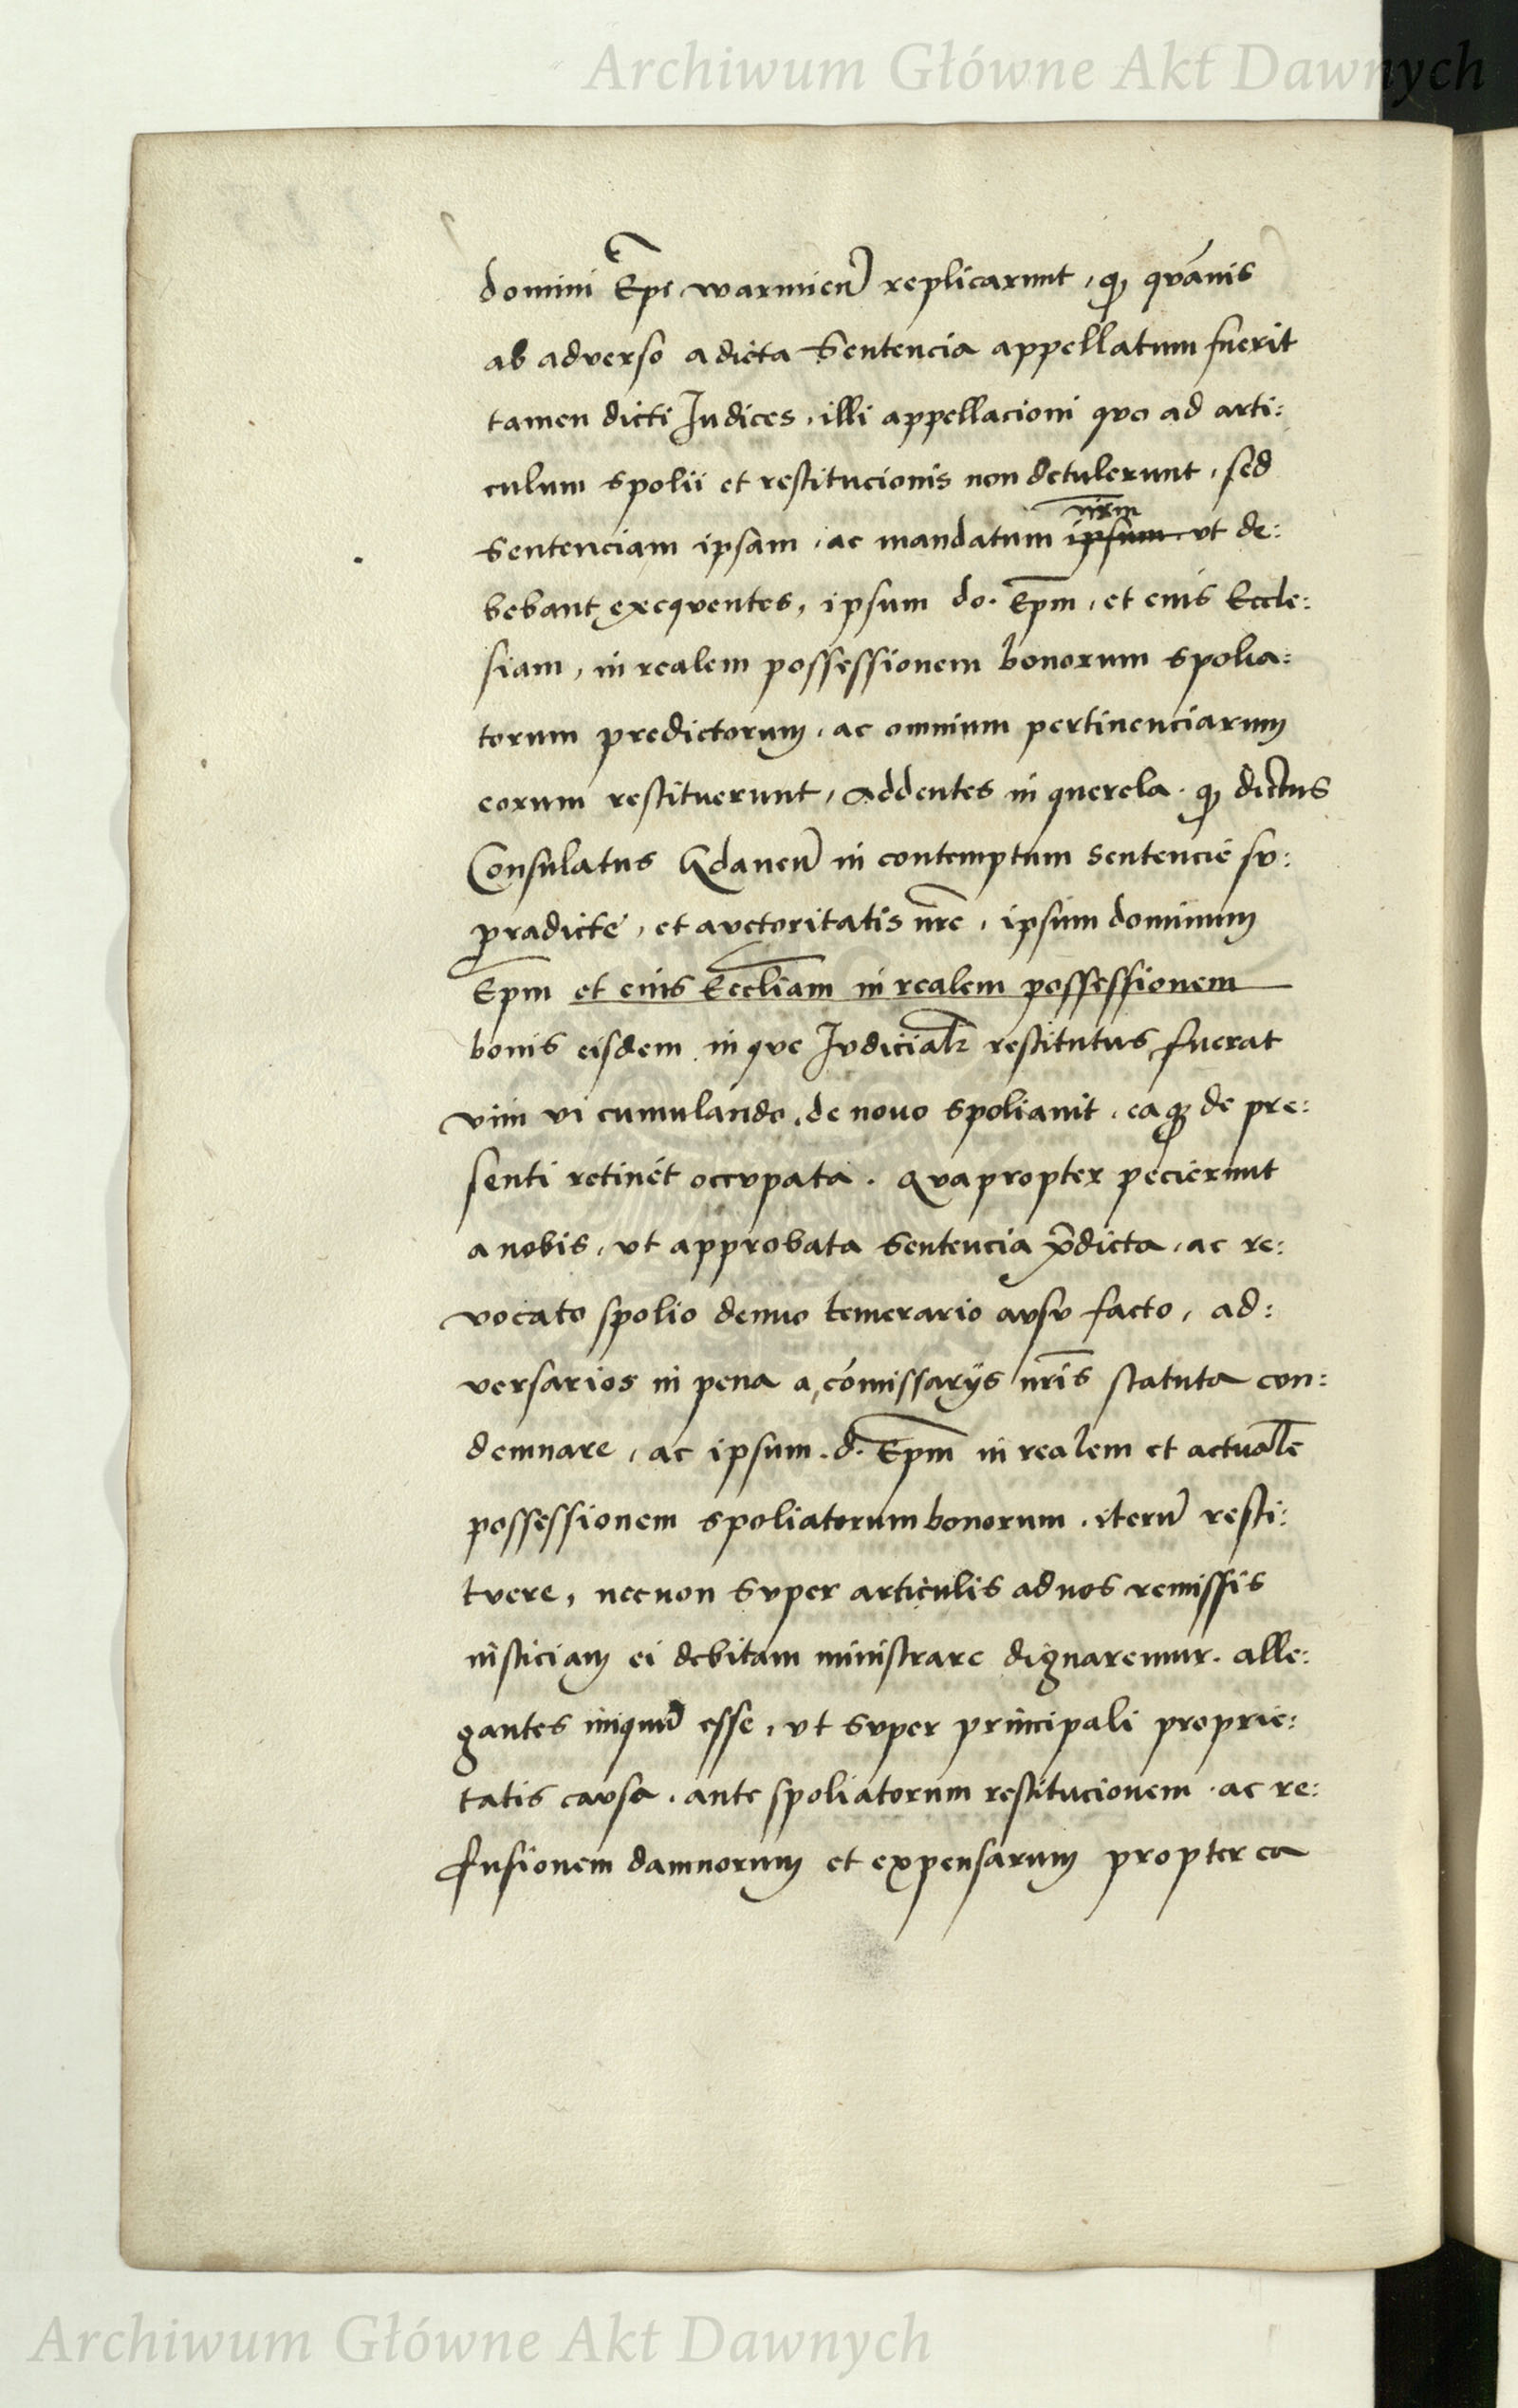 Archiwum Główne Akt Dawnych
domini Epi warmieñ replicarunt, q̃ quãuis
ab adverso a dicta Sentencia appellatum fuerit
tamen dicti Iudices, illi appellacioni quo ad arti:
culum spolii et restitucionis non detulerunt, sed
nr̃m
Sentenciam ipsam, ac mandatum ipsum vt de:
bebant exequentes, ipsum do. Epm̃, et eius Eccle:
siam, in realem possessionem bonorum spolia:
torum predictorum, ac omnium pertinenciarum
eorum restituerunt, Addentes in querela, q̃ dictus
Consulatus Gdaneñ in contemptum sentencie su:
pradicte, et auctoritatis nr̃e, ipsum dominum
Epm̃ et eius Eccliam̃ in realem possessionem
bonis eisdem in que Iudicialr̃ restitutus fuerat
vim vi cumulando, de nouo spoliauit, eaq3 de pre:
senti retinet occupata. Quapropter pecierunt
a nobis, vt approbata Sentencia p̃dicta, ac re:
vocato spolio denuo temerario ausu facto, ad:
versarios in pena a com̃issarijs nr̃is statuta con:
demnare, ac ipsum. d. Epm̃ in realem et actualẽ
possessionem spoliatorum bonorum, iterũ resti:
tuere, necnon super articulis ad nos remissis
iusticiam ei debitam ministrare dignaremur. alle:
gantes iniquũ esse, vt super principali proprie:
tatis causa, ante spoliatorum restitucionem, ac re:
fusionem damnorum et expensarum propter ea
Archiwum Główne Akt Dawnych